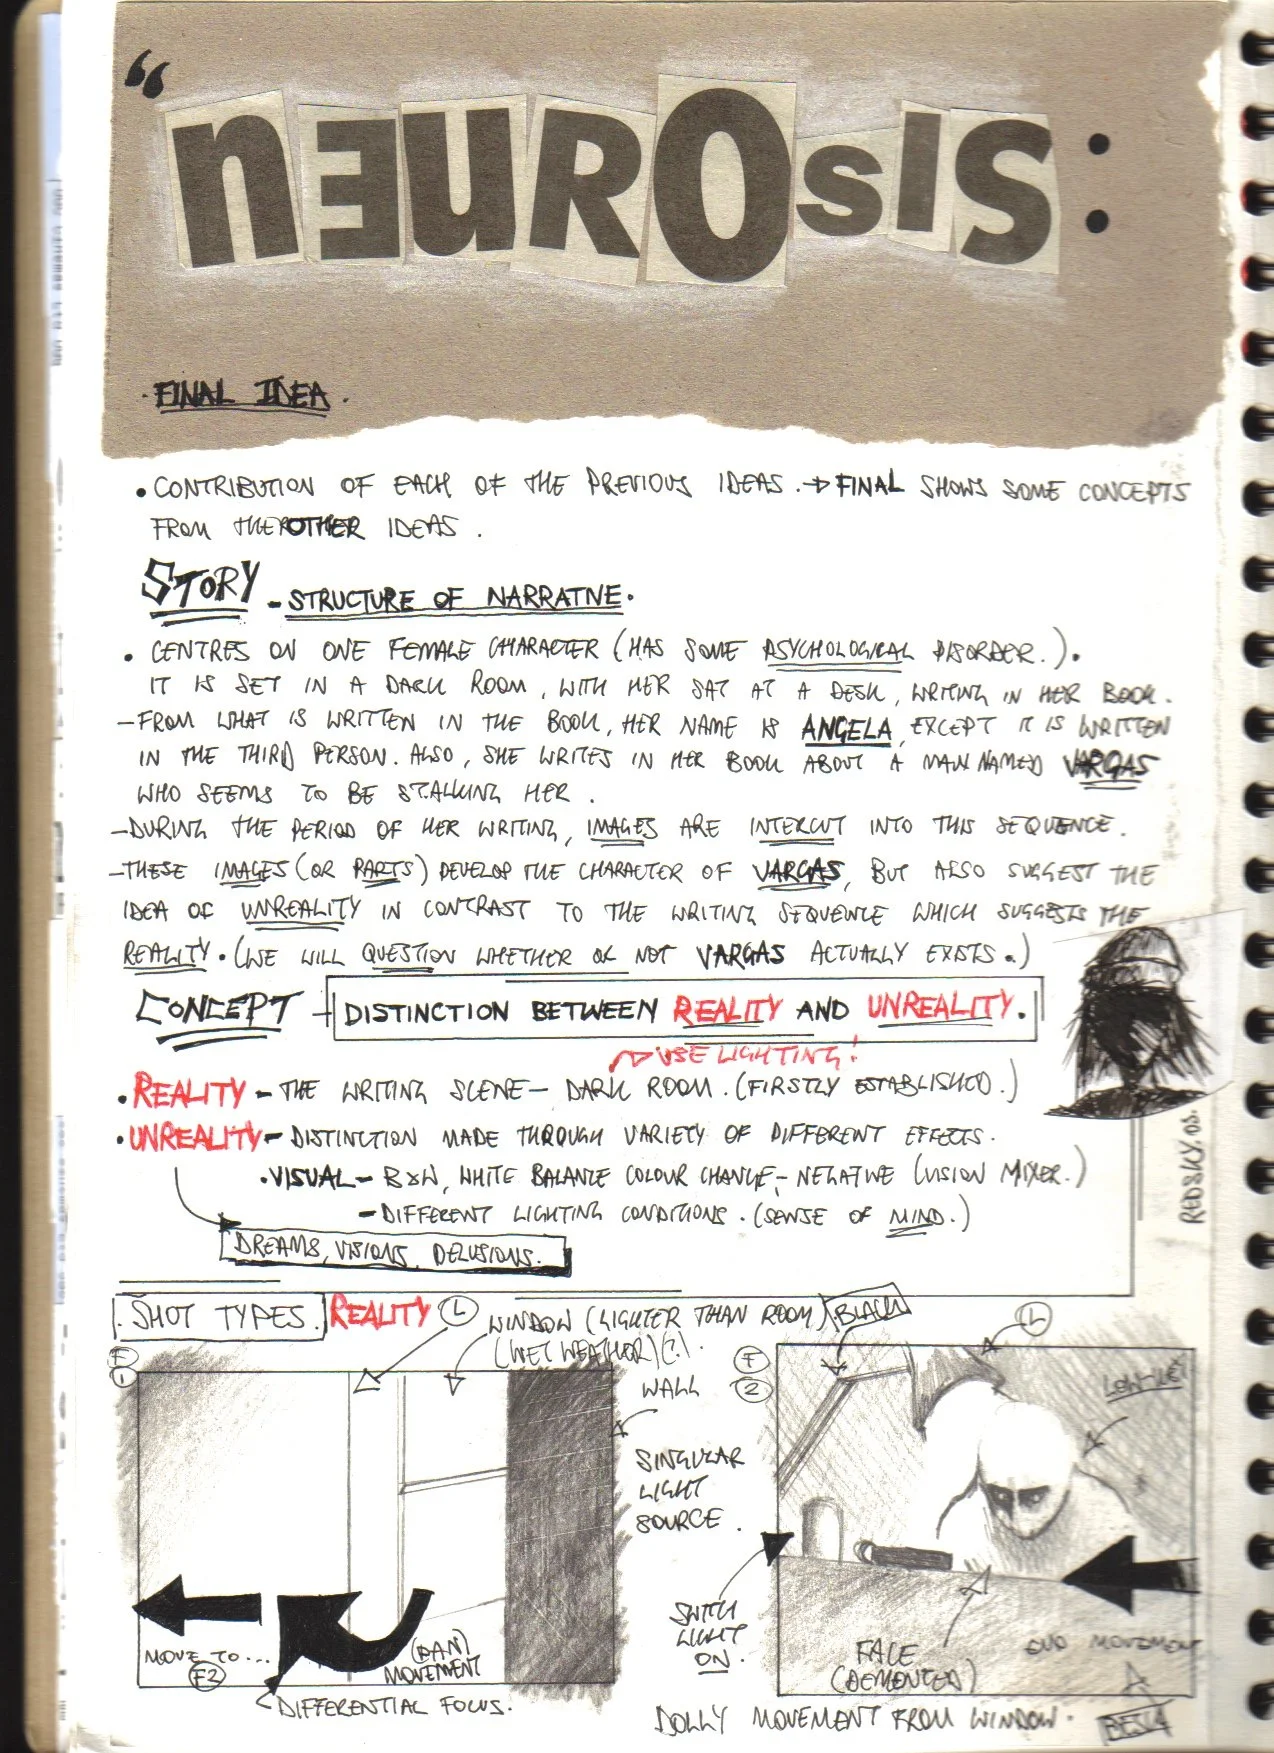 “NEUROSIS:
. FINAL IDEA .
• CONTRIBUTION OF EACH OF THE PREVIOUS IDEAS . → FINAL SHOWS SOME CONCEPTS
FROM THE OTHER IDEAS .
STORY - STRUCTURE OF NARRATIVE.
• CENTRES ON ONE FEMALE CHARACTER (HAS SOME PSYCHOLOGICAL DISORDER.).
IT IS SET IN A DARK ROOM, WITH HER SAT AT A DESK, WRITING IN HER BOOK.
- FROM WHAT IS WRITTEN IN THE BOOK, HER NAME IS ANGELA, EXCEPT IT IS WRITTEN
IN THE THIRD PERSON. ALSO, SHE WRITES IN HER BOOK ABOUT A MAN NAMED VARGAS
WHO SEEMS TO BE STALKING HER.
- DURING THE PERIOD OF HER WRITING, IMAGES ARE INTERCUT INTO THIS SEQUENCE.
- THESE IMAGES (OR PARTS) DEVELOP THE CHARACTER OF VARGAS, BUT ALSO SUGGEST THE
IDEA OF UNREALITY IN CONTRAST TO THE WRITING SEQUENCE WHICH SUGGESTS THE
REALITY. (WE WILL QUESTION WHETHER OR NOT VARGAS ACTUALLY EXISTS.)
CONCEPT - DISTINCTION BETWEEN REALITY AND UNREALITY.
→ USE LIGHTING!
• REALITY - THE WRITING SCENE - DARK ROOM. (FIRSTLY ESTABLISHED.)
• UNREALITY - DISTINCTION MADE THROUGH VARIETY OF DIFFERENT EFFECTS.
• VISUAL - B&W, WHITE BALANCE COLOUR CHANGE, - NEGATIVE (VISION MIXER.)
- DIFFERENT LIGHTING CONDITIONS. (SENSE OF MIND.)
DREAMS, VISIONS, DELUSIONS.
REDSKY. 03.
. SHOT TYPES. REALITY (L) WINDOW (LIGHTER THAN ROOM) BLACK (L)
(WET WEATHER)(?).
F
1
WALL
F
2
LOW-KEY
SINGULAR
LIGHT
SOURCE.
SWITCH
LIGHT
ON.
MOVE TO ...
F2
(PAN)
MOVEMENT
DIFFERENTIAL FOCUS.
FACE
(DEMENTED)
END MOVEMENT
DESK
DOLLY MOVEMENT FROM WINDOW.